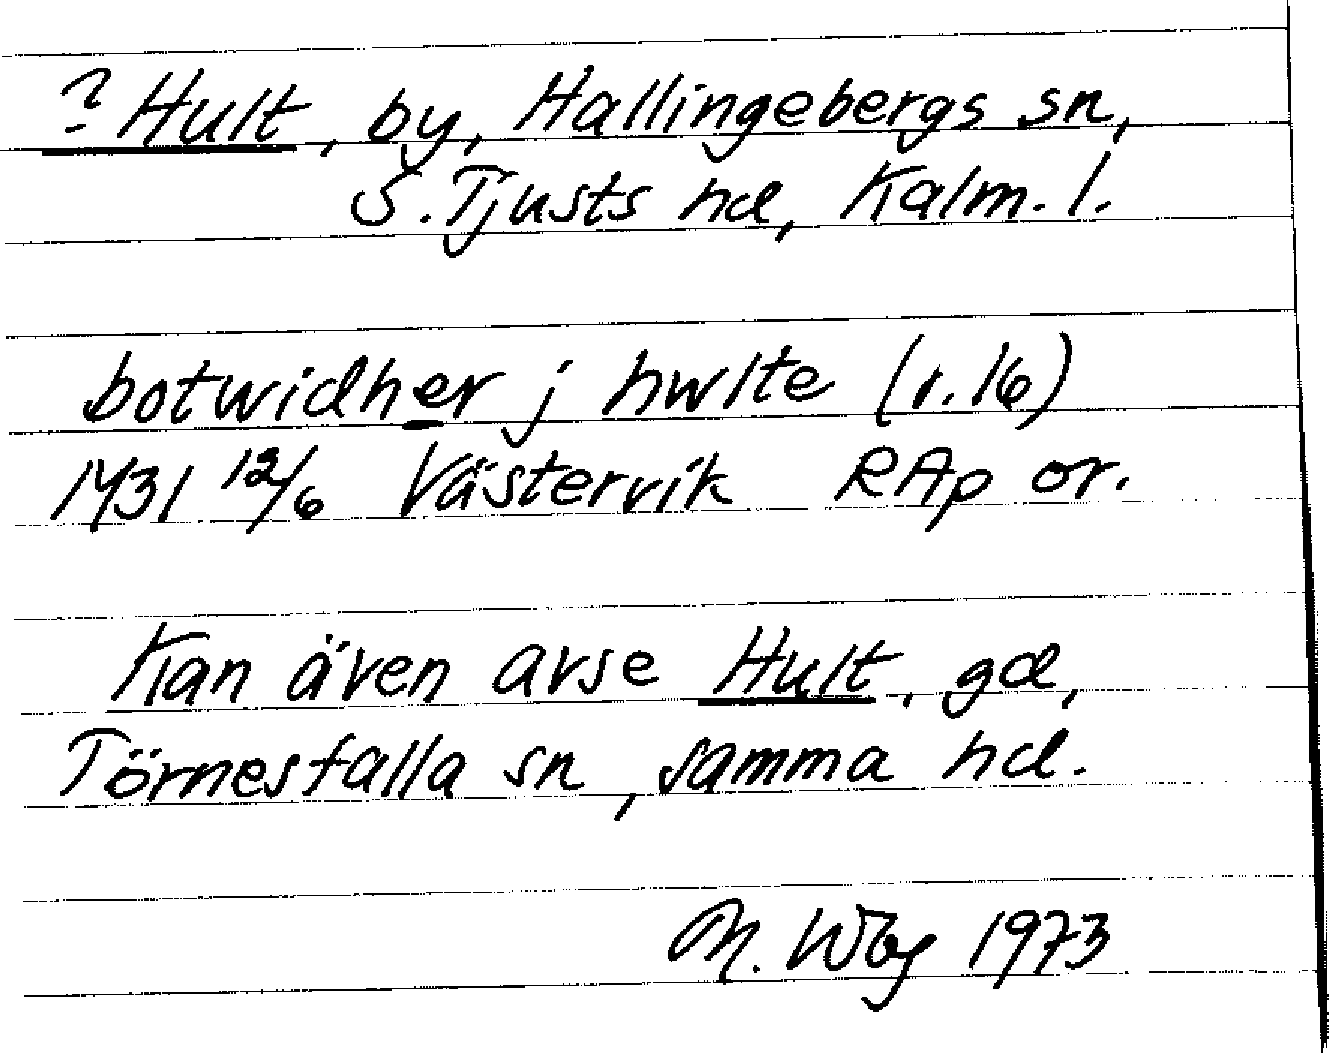 ? Hult, by, Hallingebergs sn,
S. Tjusts hd, Kalm. l.
botwidher j hwlte (r. 16)
1431 12/6 Västervik RAp or.
Kan även avse Hult, gd,
Törnesfalla sn, samma hd.
M. Wbg 1973